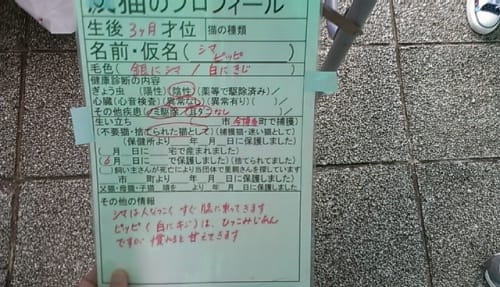 猫のプロフィール
生後 3ヶ月 才位 猫の種類
名前・仮名( シマ ピッピ )
毛色( 銀にシマ / 白にきじ )
健康診断の内容
ぎょう虫 (陽性)(陰性)(薬等で駆除済み)/
心臓(心音検査)(異常なし)(異常有り)( )/
その他疾患(ノミ駆除/耳ダニなし
生い立ち 市 町で捕獲)
(不要猫・捨てられた猫として)(捕獲猫・迷い猫として)
(保健所より 年 月 日に保護しました)
( 月 日に 宅で産まれました)
( 6 月 日に で保護しました (捨てられてました)
( )飼い主さんが死亡により当団体で里親さんを探しています
市 町より 年 月 日に保護しました
父猫・母猫・子猫 頭を より 年 月 日に保護しました
その他の情報
シマは人なつこく すぐ膝に乗ってきます
ピッピ(白にキジ)は、ひっこみじあん
ですが 慣れると甘えてきます